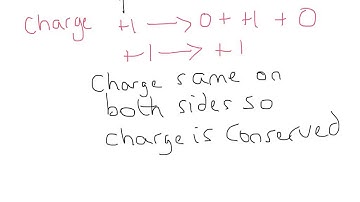 Charge +1 → 0 + +1 + 0
+1 → +1
Charge same on
both sides so
charge is conserved